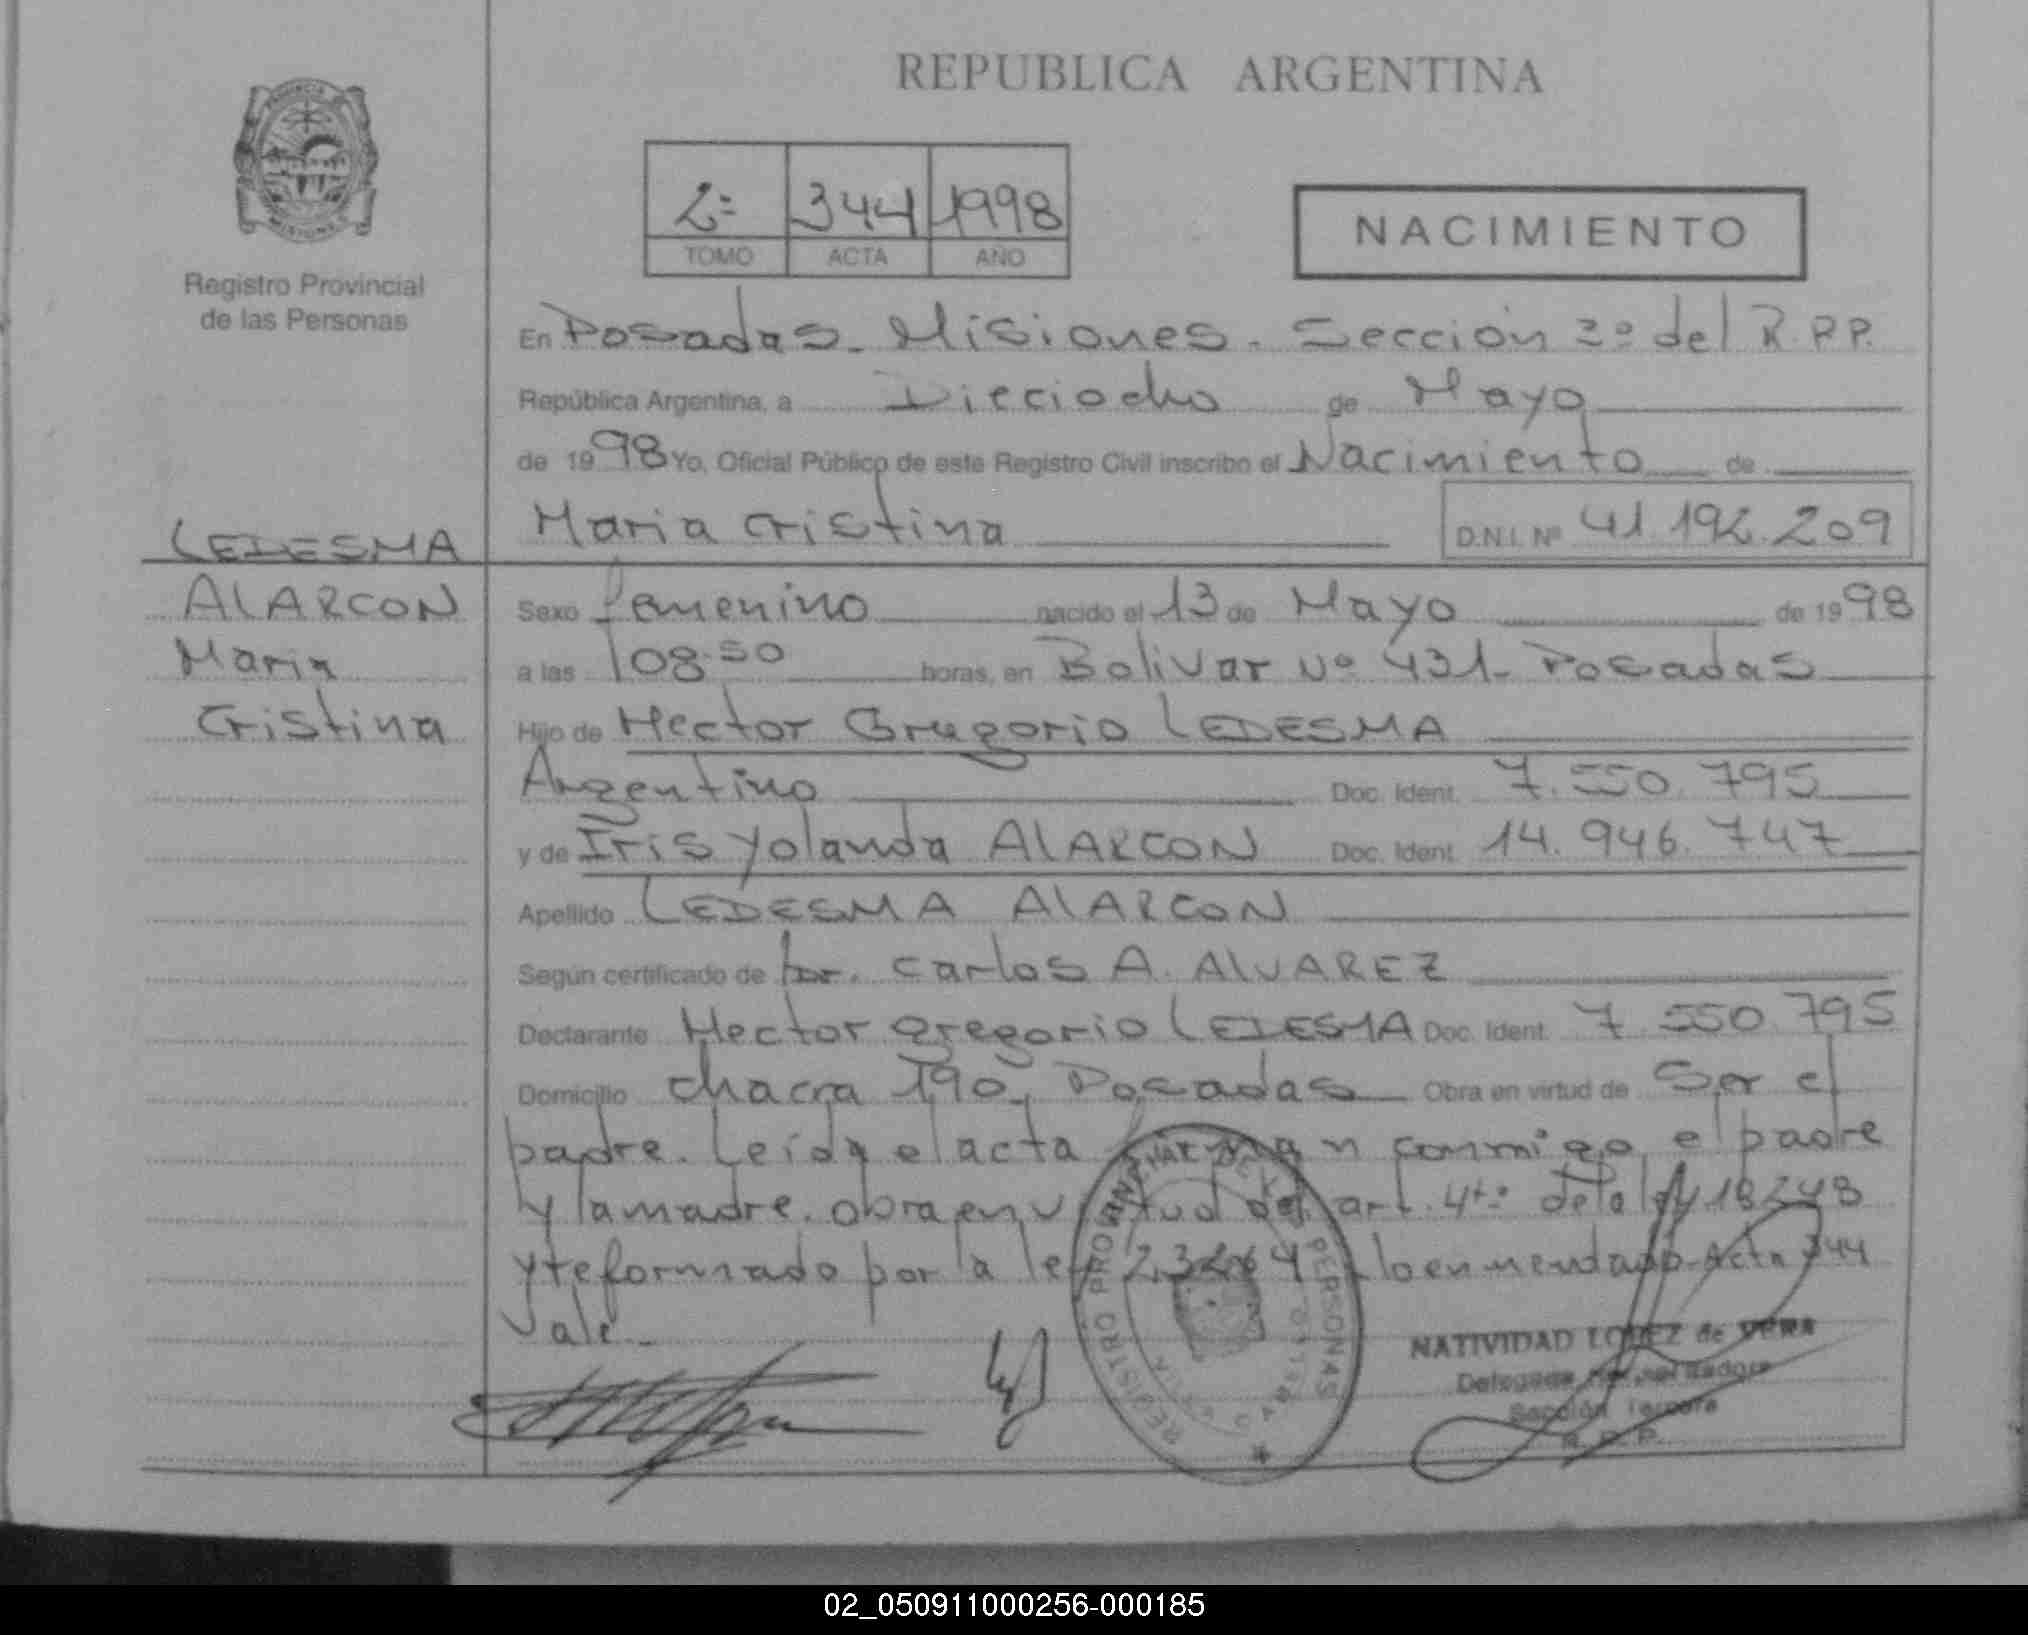 REPUBLICA ARGENTINA
PROVINCIA
MISIONES
Registro Provincial
de las Personas
2º 344 1998
TOMO ACTA AÑO
NACIMIENTO
En Posadas - Misiones - Sección 3º del R.P.P.
República Argentina, a Dieciocho de Mayo
de 1998 Yo, Oficial Público de este Registro Civil inscribo el Nacimiento de
Maria Cristina D.N.I. Nº 41.192.209
LEDESMA
ALARCON
Maria
Cristina
Sexo femenino nacido el 13 de Mayo de 1998
a las 08:50 horas, en Bolivar Nº 431 - Posadas
Hijo de Hector Gregorio LEDESMA
Argentino Doc. Ident. 7.550.795
y de Iris Yolanda ALARCON Doc. Ident. 14.946.747
Apellido LEDESMA ALARCON
Según certificado de Dr. Carlos A. ALVAREZ
Declarante Hector Gregorio LEDESMA Doc. Ident. 7.550.795
Domicilio Chacra 190, Posadas Obra en virtud de Ser el
padre. Leída el acta firman conmigo el padre
y la madre. obra en virtud del art. 4to de la ley 18248
y reformado por la ley 23264 lo enmendado Acta 344
Vale -
REGISTRO PROVINCIAL DE LAS PERSONAS
NATIVIDAD LOPEZ de VERA
Delegada
Sección Tercera
R. P. P.
02_050911000256-000185